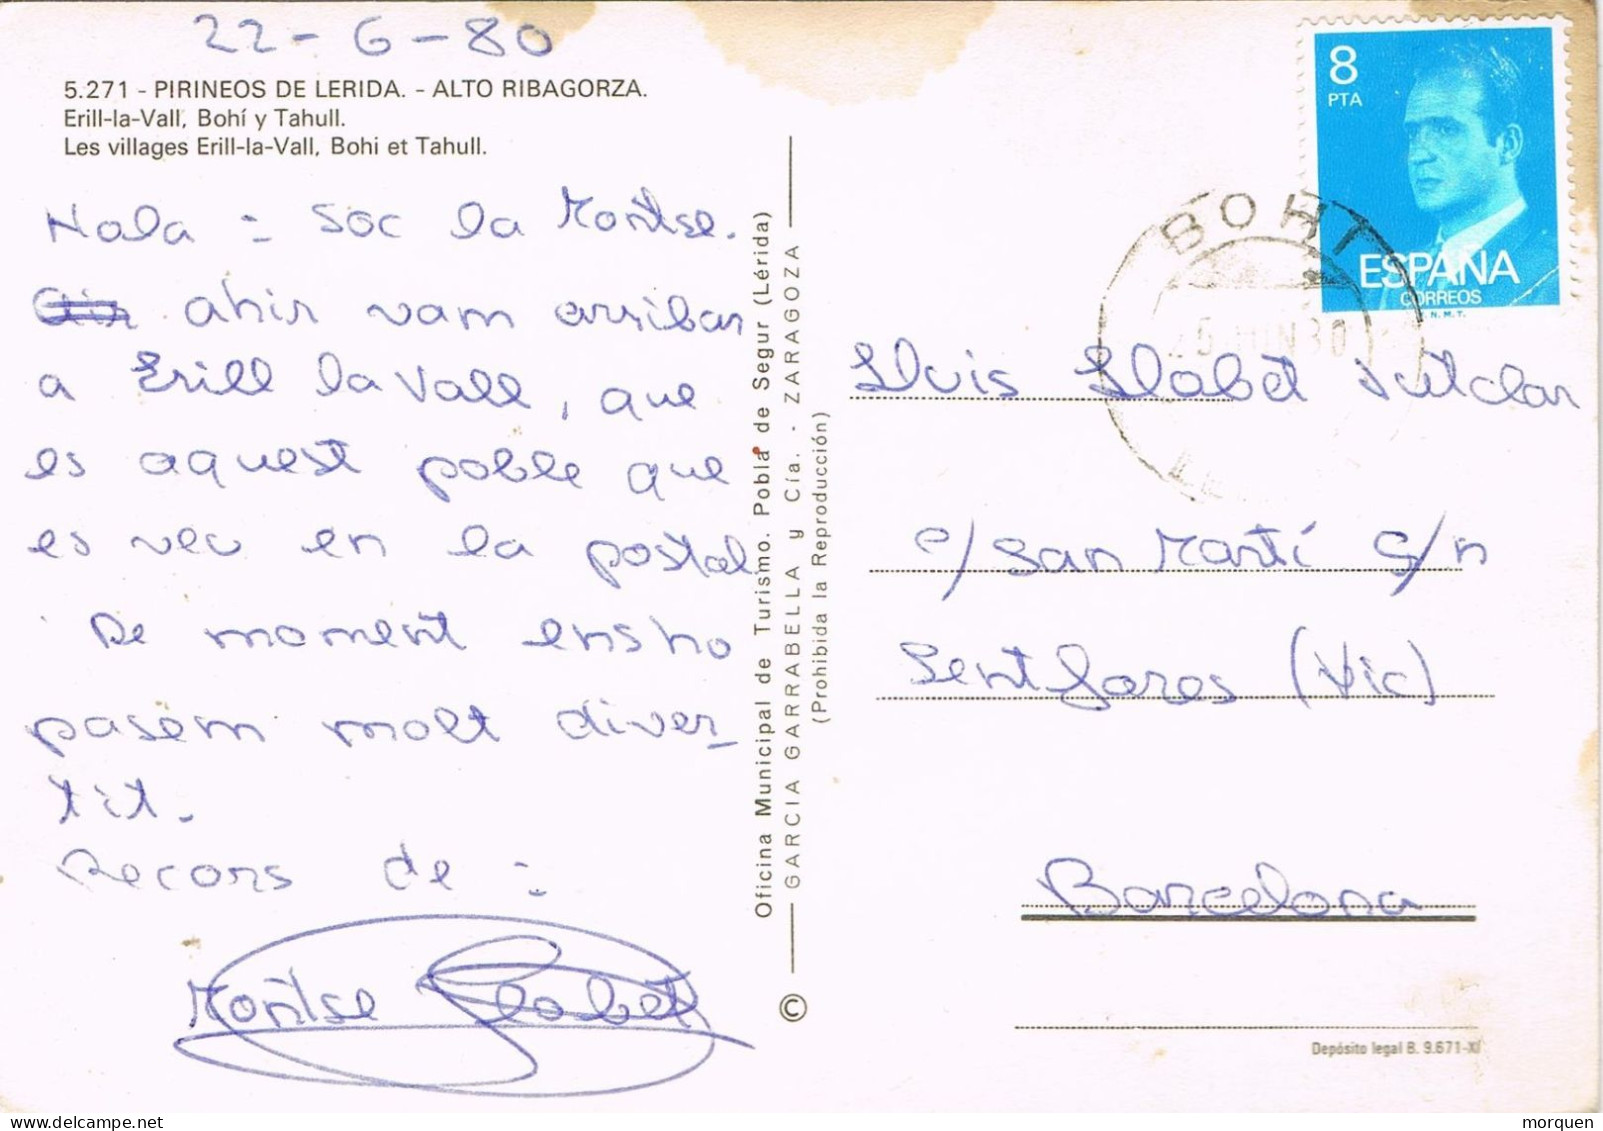 22-6-80
5.271 - PIRINEOS DE LERIDA. - ALTO RIBAGORZA.
Erill-la-Vall, Bohí y Tahull.
Les villages Erill-la-Vall, Bohi et Tahull.
Hola = soc la Montse.
ahir vam arribar
a Erill la Vall, que
es aquest poble que
es veu en la postal
De moment ens ho
pasem molt diver-
tit.
Recors de =
Montse Llobet
Oficina Municipal de Turismo. Pobla de Segur (Lérida)
© GARCIA GARRABELLA y Cía. - ZARAGOZA
(Prohibida la Reproducción)
8
PTA
ESPAÑA
CORREOS
F.N.M.T.
BOHI
25 JUN 80
Lluis Llobet
c/ San Martí s/n
Sentfores (Vic)
Barcelona
Depósito legal B. 9.671-XI
morquen